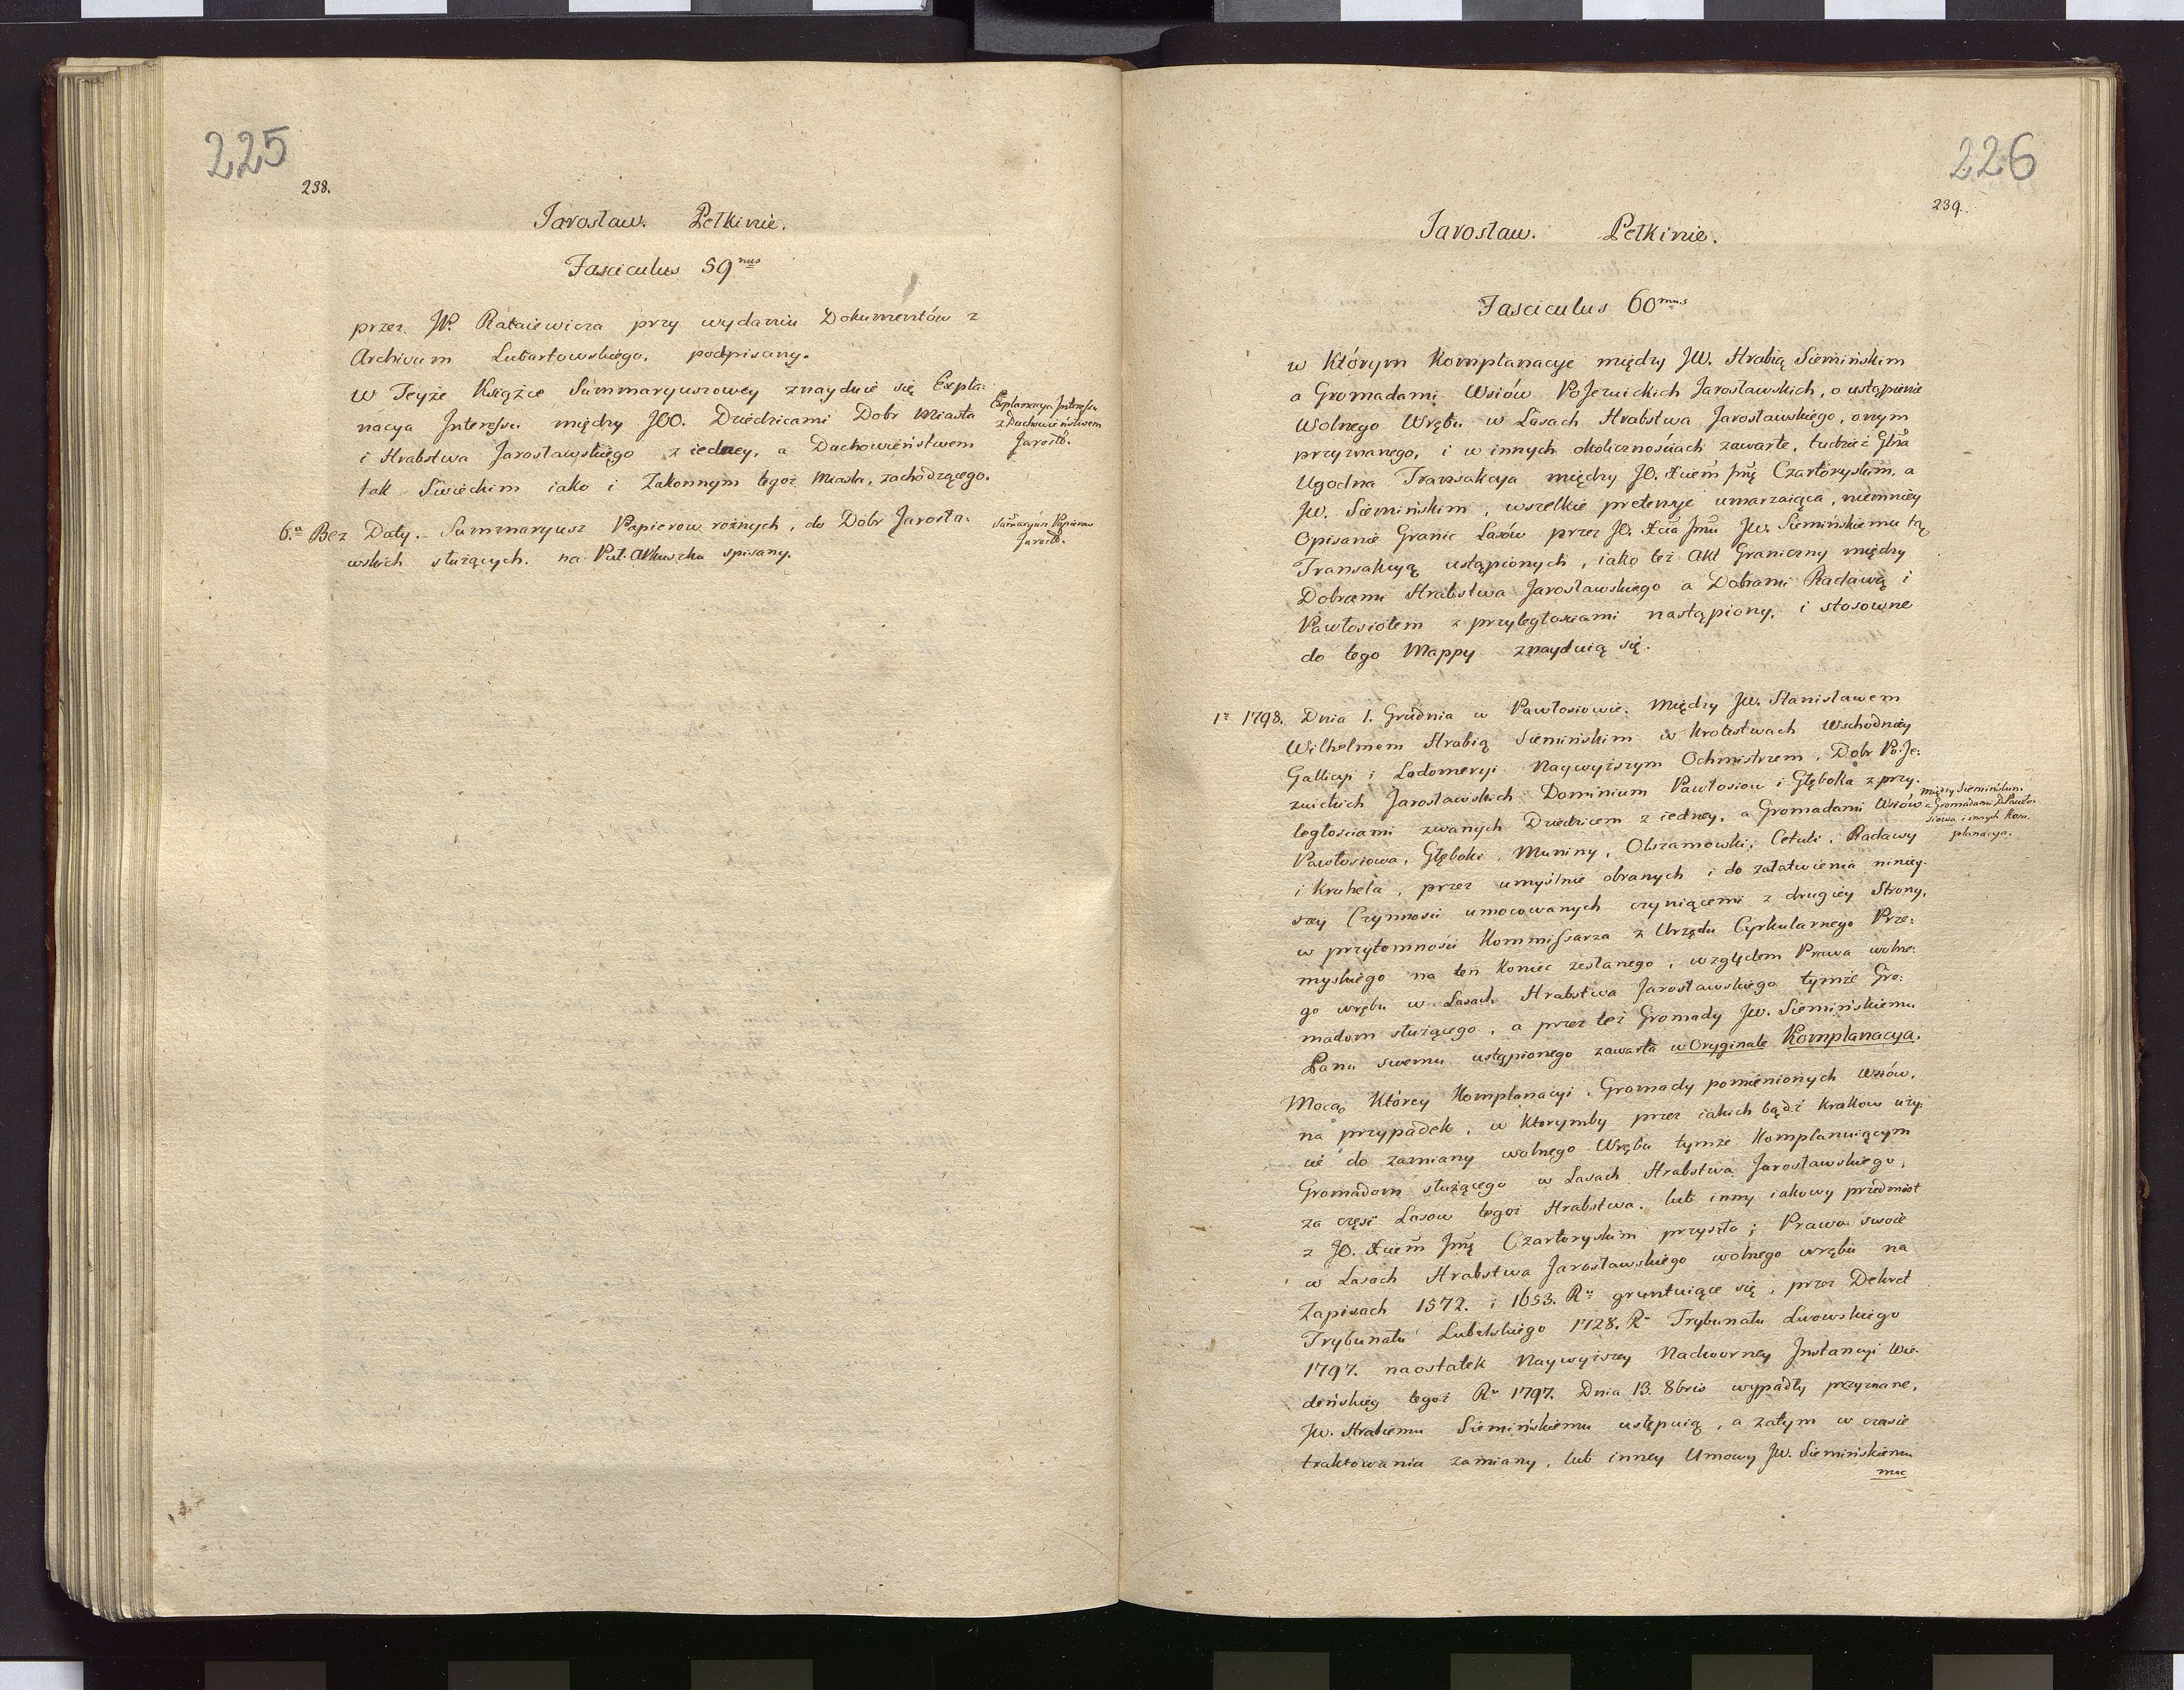 225
238.
Jarosław. Pełkinie.
Fasciculus 59nus
przez JP. Rataiewicza przy wydaniu Dokumentów z
Archivum Lubartowskiego, podpisany.
W Teyże Książce Summaryuszowey znayduie się Expla:
nacya Interessu między JOO. Dziedzicami Dobr Miasta
i Hrabstwa Jarosławskiego z iedney, a Duchowieństwem
tak Swieckim iako i Zakonnym tegoż Miasta, zachodzącego.
Explanacya Interessu
z Duchowieństwem
Jarosł.
6.a Bez Daty. Summaryusz Papierow rożnych, do Dóbr Jarosła:
wskich służących, na Puł. Arkuszku spisany.
Sumaryusz Papierow
Jarosł.
226
239.
Jarosław. Pełkinie.
Fasciculus 60mus
w Którym Komplanacye między JW. Hrabią Siemińskim
a Gromadami Wsiów PoJezuickich Jarosławskich, o ustąpienie
Wolnego Wrębu w Lasach Hrabstwa Jarosławskiego, onym
przyznanego, i w innych okolicznościach zawarte, tudzież Głna
Ugodna Transakcya między JO. Xciem Jmę Czartoryskim, a
JW. Siemińskim, wszelkie pretensye umarzaiąca, niemniey
Opisanie Granic Lasów przez JO. Xcia Jmci JW. Siemińskiemu tą
Transakcyą ustąpionych, iako też Akt Graniczny między
Dobrami Hrabstwa Jarosławskiego a Dobrami Radawą i
Pawłosiołem z przyległosciami nastąpiony, i stosowne
do tego Mappy znayduią się.
1º 1798. Dnia 1. Grudnia w Pawłosiowie. Między JW. Stanisławem
Wilhelmem Hrabią Siemińskim w Krolestwach Wschodniey
Gallicyi i Lodomeryi Naywyższym Ochmistrzem, Dobr PoJe:
zuickich Jarosławskich Dominium Pawłosiow i Głęboka z przy:
ległosciami zwanych Dziedzicem z iedney, a Gromadami Wsiów
Pawłosiowa, Głęboki, Muniny, Olszamowki, Cetuli, Radawy
i Kruhela, przez umyślnie obranych i do załatwienia niniey:
szey Czynności umocowanych czyniącemi z drugiey Strony,
w przytomności Kommissarza z Urzędu Cyrkularnego Prze:
myskiego na ten Koniec zesłanego, względem Prawa wolne:
go wrębu w Lasach Hrabstwa Jarosławskiego tymże Gro:
madom służącego, a przez też Gromady JW. Siemińskiemu
Panu swemu ustąpionego zawarta w Oryginale Komplanacya.
między Siemińskim
a Gromadami Pawło:
siowa i innych Kom:
planacya.
Mocą Którey Komplanacyi, Gromady pomienionych Wsiów,
na przypadek, w Ktorymby przez iakich bądź Krakow uży:
cie do zamiany wolnego Wrębu tymże Komplanuiącym
Gromadom służącego w Lasach Hrabstwa Jarosławskiego,
za część Lasow tegoż Hrabstwa, lub inny iakowy przedmiot
z JO. Xciem Jmę Czartoryskim przyszło; Prawa swoie
w Lasach Hrabstwa Jarosławskiego wolnego wrębu na
Zapisach 1572. i 1653. Ru gruntuiące się, przez Dekret
Trybunału Lubelskiego 1728. R. Trybunału Lwowskiego
1797. naostatek Naywyższey Nadworney Instancyi Wie:
deńskiey tegoż Ru 1797. Dnia 13. 8bris wypadły przyznane,
JW. Hrabiemu Siemińskiemu ustępuią, a zatym w czasie
traktowania zamiany, lub inney Umowy JW. Siemińskiemu
moc